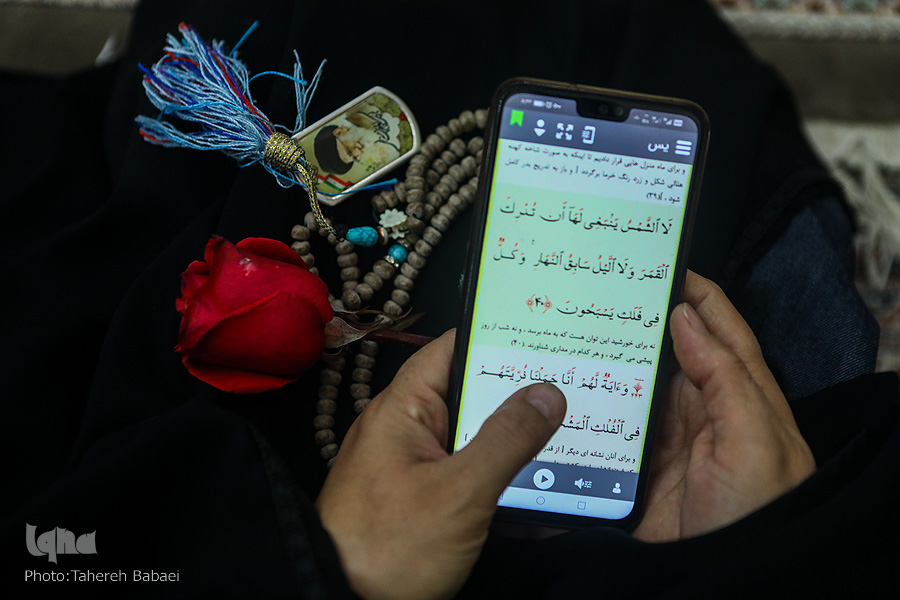 یس
و برای ماه منزل هایی قرار دادیم تا اینکه به صورت شاخه کهنه
هلالی شکل و زرد رنگ خرما برگردد | و باز به تدریج بدر کامل
شود . |(۳۹)
لَا ٱلشَّمْسُ يَنۢبَغِى لَهَآ أَن تُدْرِكَ
ٱلْقَمَرَ وَلَا ٱلَّيْلُ سَابِقُ ٱلنَّهَارِ ۚ وَكُلٌّ
فِى فَلَكٍ يَسْبَحُونَ ﴿۴۰﴾
نه برای خورشید این توان هست که به ماه برسد ، و نه شب از روز
پیشی می گیرد ، و هر کدام در مداری شناورند (۴۰)
وَءَايَةٌ لَّهُمْ أَنَّا حَمَلْنَا ذُرِّيَّتَهُمْ
فِى ٱلْفُلْكِ
و برای آنان نشانه ای دیگر | از قدر
Iqna
Photo:Tahereh Babaei